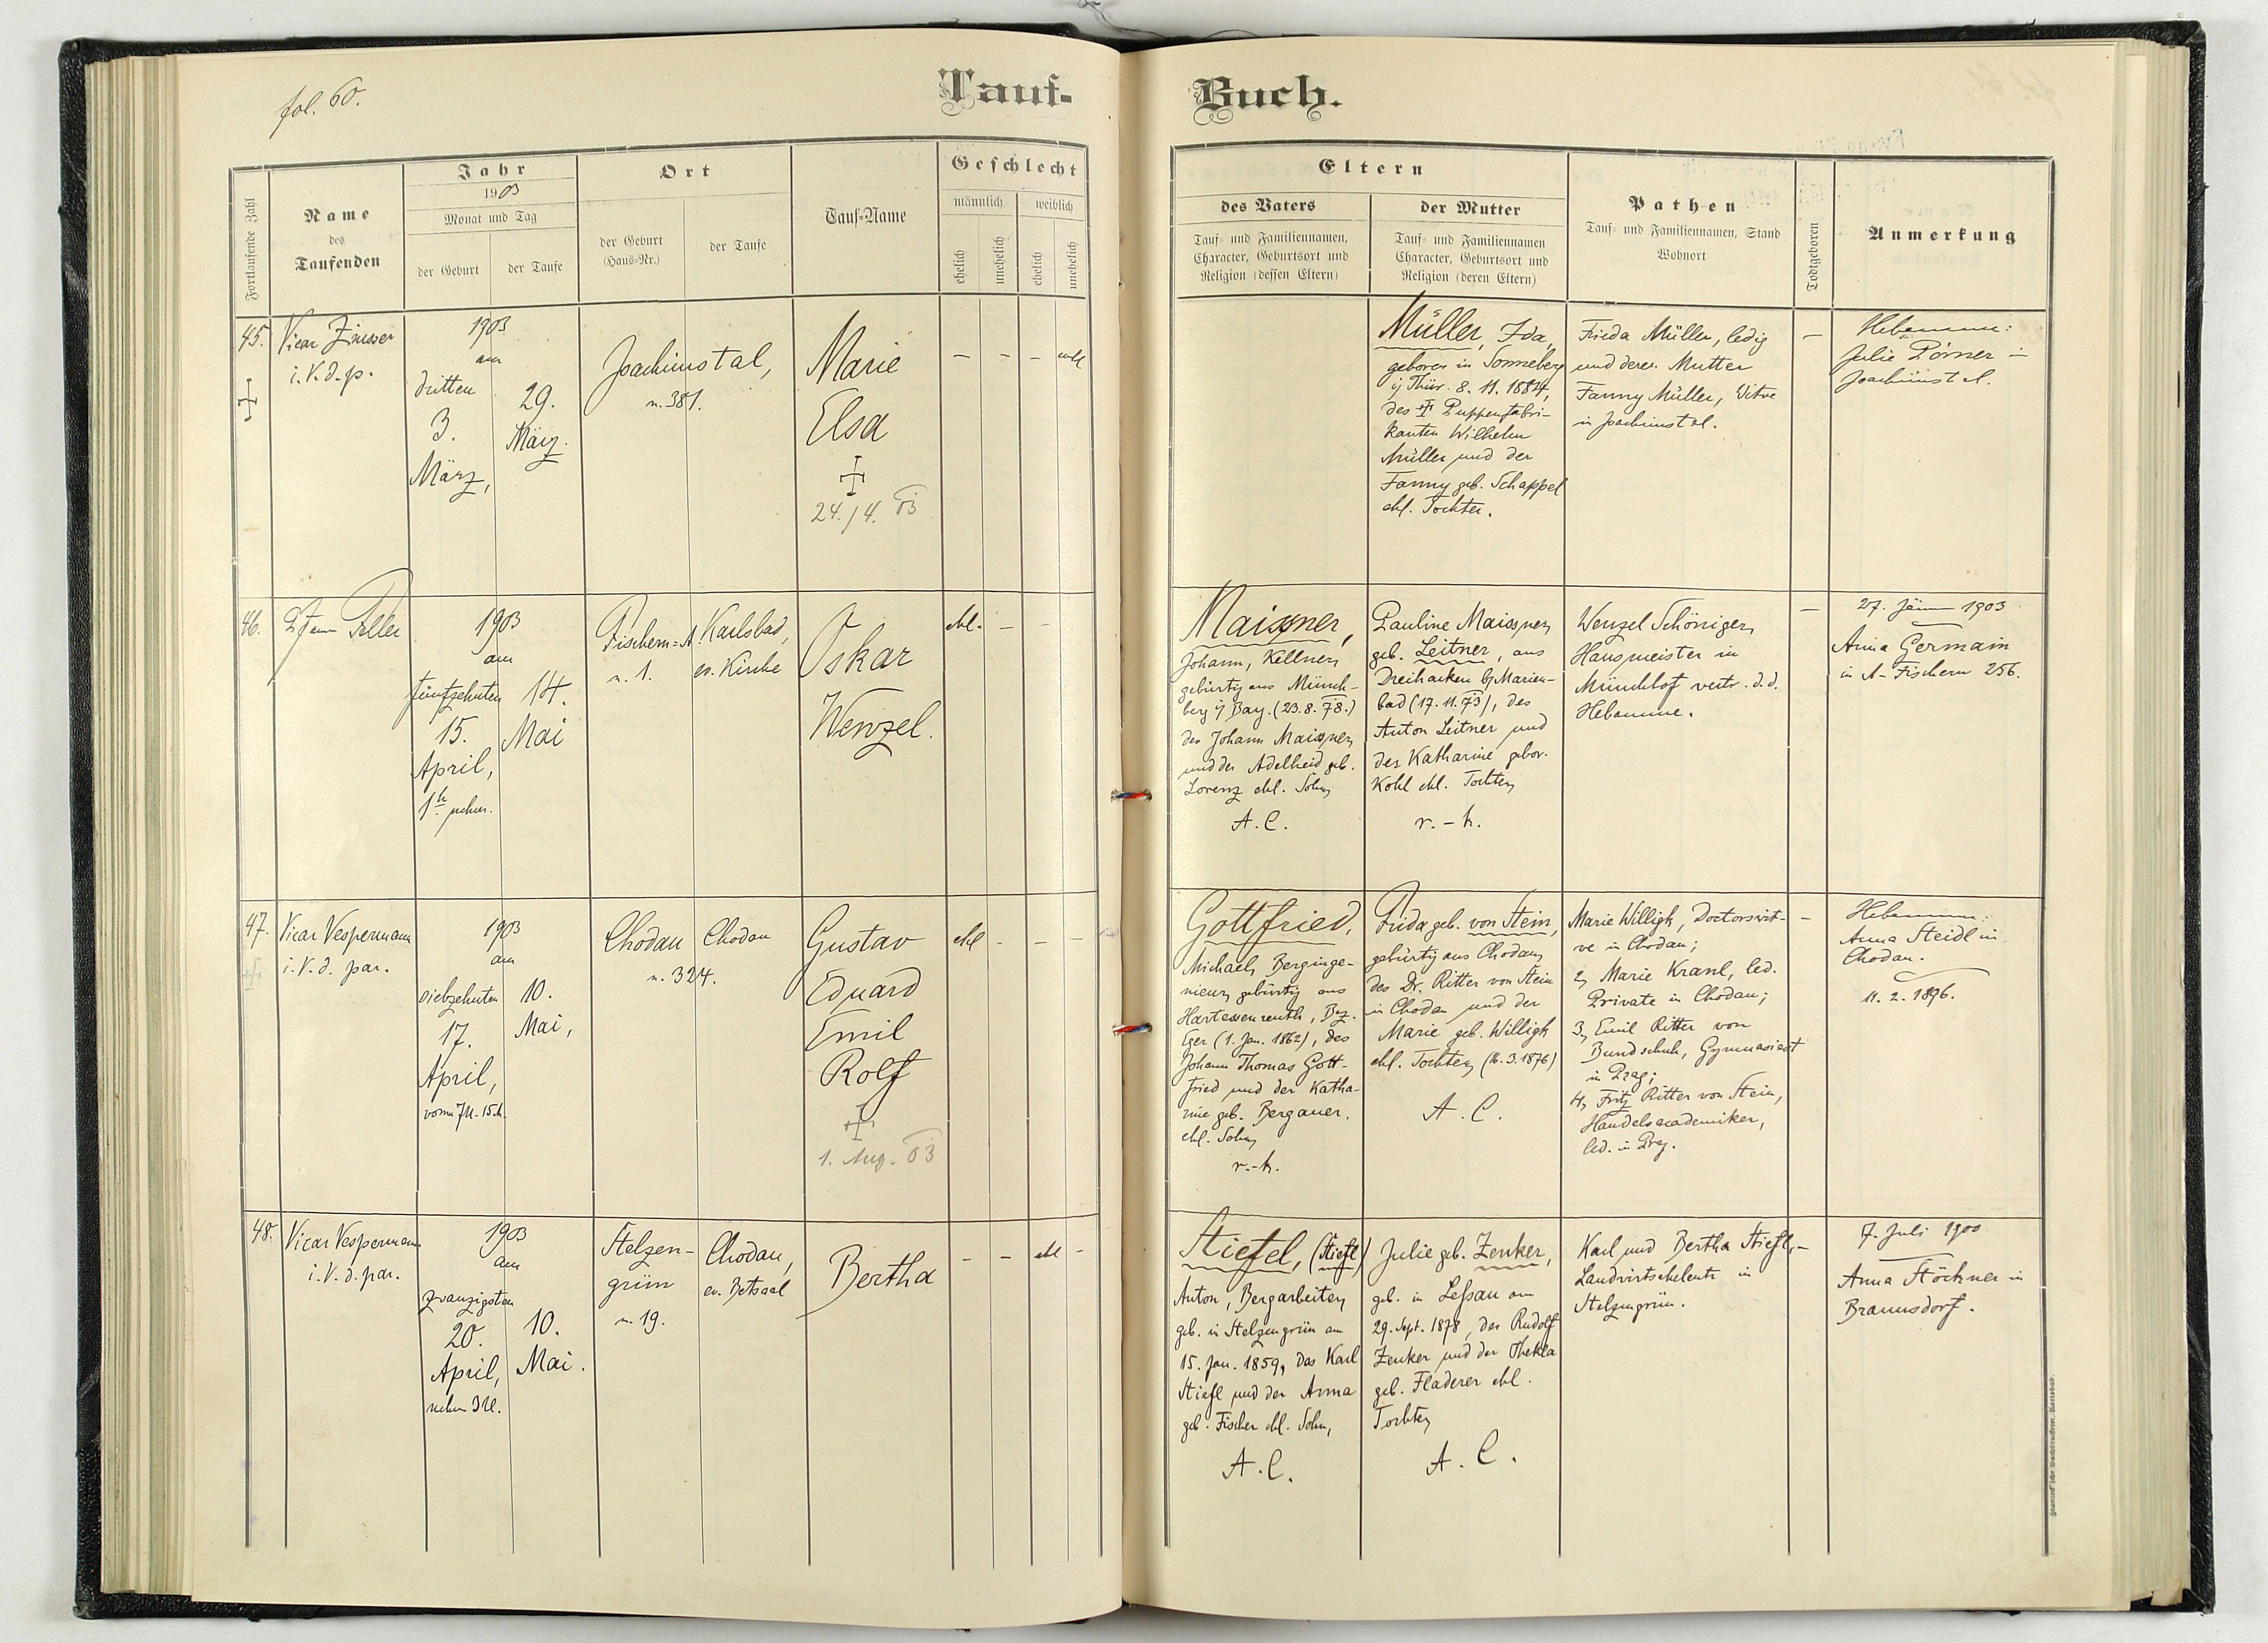 fol. 60.
Tauf-
Buch.
Fortlaufende Zahl
Name
des
Taufenden
Jahr
1903
Monat und Tag
der Geburt
der Taufe
Ort
der Geburt
(Haus-Nr.)
der Taufe
Tauf-Name
Geschlecht
männlich
weiblich
ehelich
unehelich
ehelich
unehelich
Eltern
des Vaters
Tauf- und Familiennamen,
Character, Geburtsort und
Religion (dessen Eltern)
der Mutter
Tauf- und Familiennamen
Character, Geburtsort und
Religion (deren Eltern)
Pathen
Tauf- und Familiennamen, Stand
Wohnort
Todtgeboren
Anmerkung
45.
Vicar
i. V. d. p.
1903
am
dritten
3.
März,
29.
März.
Joachimstal,
n. 381.
Marie
Elsa
24./4. 03
– – –
Müller, Ida,
geboren in Sonneberg
i/ Thür. 8. 11. 1884,
des † Puppenfabri-
kanten Wilhelm
Müller und der
Fanny geb. Schappel
ehl. Tochter.
Frieda Müller, ledig
und deren Mutter
Fanny Müller, Witve
in Joachimstal.
–
Hebamme:
Julie Pörner in
Joachimstal.
46.
1903
am
fünfzehnten
15.
April,
1h nchm.
14.
Mai
Fischern-A.
n. 1.
Karlsbad,
ev. Kirche
Oskar
Wenzel.
ehl. – –
Maissner,
Johann, Kellner,
gebürtig aus Münch-
berg i/ Bay. (23. 8. 78.)
des Johann Maissner
und der Adelheid geb.
Lorenz ehl. Sohn
A. C.
Pauline Maissner,
geb. Leitner, aus
Dreihacken b/ Marien-
bad (17. 11. 73), des
Anton Leitner und
der Katharine gebor.
Kohl ehl. Tochter
r. - k.
Wenzel Schöniger,
Hausmeister in
Münchhof vertr. d. d.
Hebamme.
–
27. Jänn 1903
Anna Germain
in A-Fischern 256.
47.
Vicar Vespermann
i. V. d. par.
1903
am
siebzehnten
17.
April,
vorm 7 U. 15 M.
10.
Mai,
Chodau
n. 324.
Chodau
Gustav
Eduard
Emil
Rolf
1. Aug. 03
ehl – – –
Gottfried,
Michael, Berginge-
nieur, gebürtig aus
Hartessenreuth, Bez.
Eger (1. Jan. 1862), des
Johann Thomas Gott-
fried und der Katha-
rine geb. Bergauer.
ehl. Sohn
r.-k.
Frida geb. von Stein,
gebürtig aus Chodau,
des Dr. Ritter von Stein
in Chodau und der
Marie geb. Willigk
ehl. Tochter (16. 3. 1876)
A. C.
Marie Willigk, Doctorswit-
ve in Chodau;
2, Marie Kranl, led.
Private in Chodau;
3, Emil Ritter von
Bundschuh, Gymnasiast
in Prag;
4, Fritz Ritter von Stein,
Handelsacademiker,
led. in Prag.
–
Hebamme:
Anna Steidl in
Chodau.
11. 2. 1896.
48.
Vicar Vespermann
i. V. d. par.
1903
am
zwanzigsten
20.
April,
nchm 3 U.
10.
Mai.
Stelzen-
grün
n. 19.
Chodau,
ev. Betsaal
Bertha
– – ehl –
Stiefel, (Stiefl)
Anton, Bergarbeiter,
geb. in Stelzengrün am
15. Jan. 1859, des Karl
Stiefl und der Anna
geb. Fischer ehl. Sohn,
A. C.
Julie geb. Zenker,
geb. in Lessau am
29. Sept. 1878, des Rudolf
Zenker und der Thekla
geb. Fladerer ehl.
Tochter
A. C.
Karl und Bertha Stiefl,
Landwirtseheleute in
Stelzengrün.
–
7. Juli 1900
Anna Stöckner in
Braunsdorf.